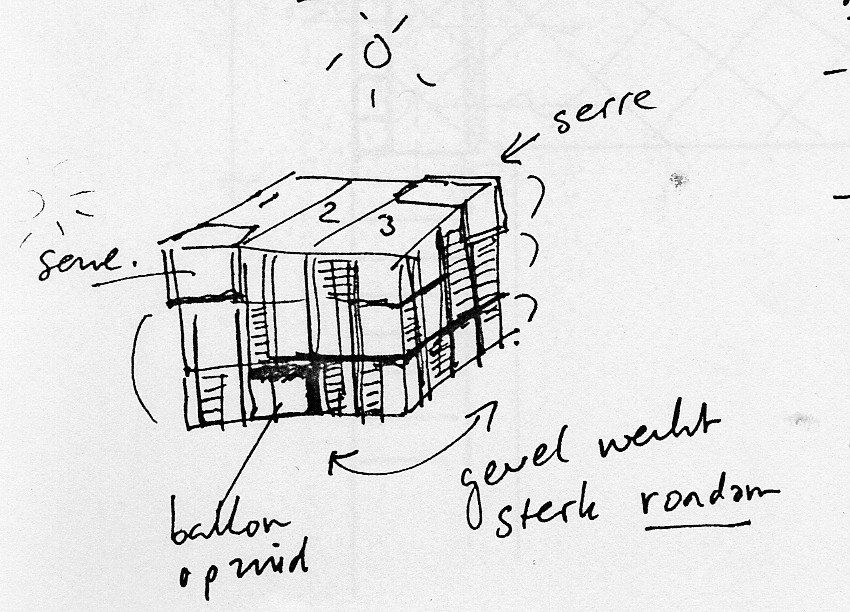 serre
2
3
serre.
gevel werkt
sterk rondom
balkon
op zuid